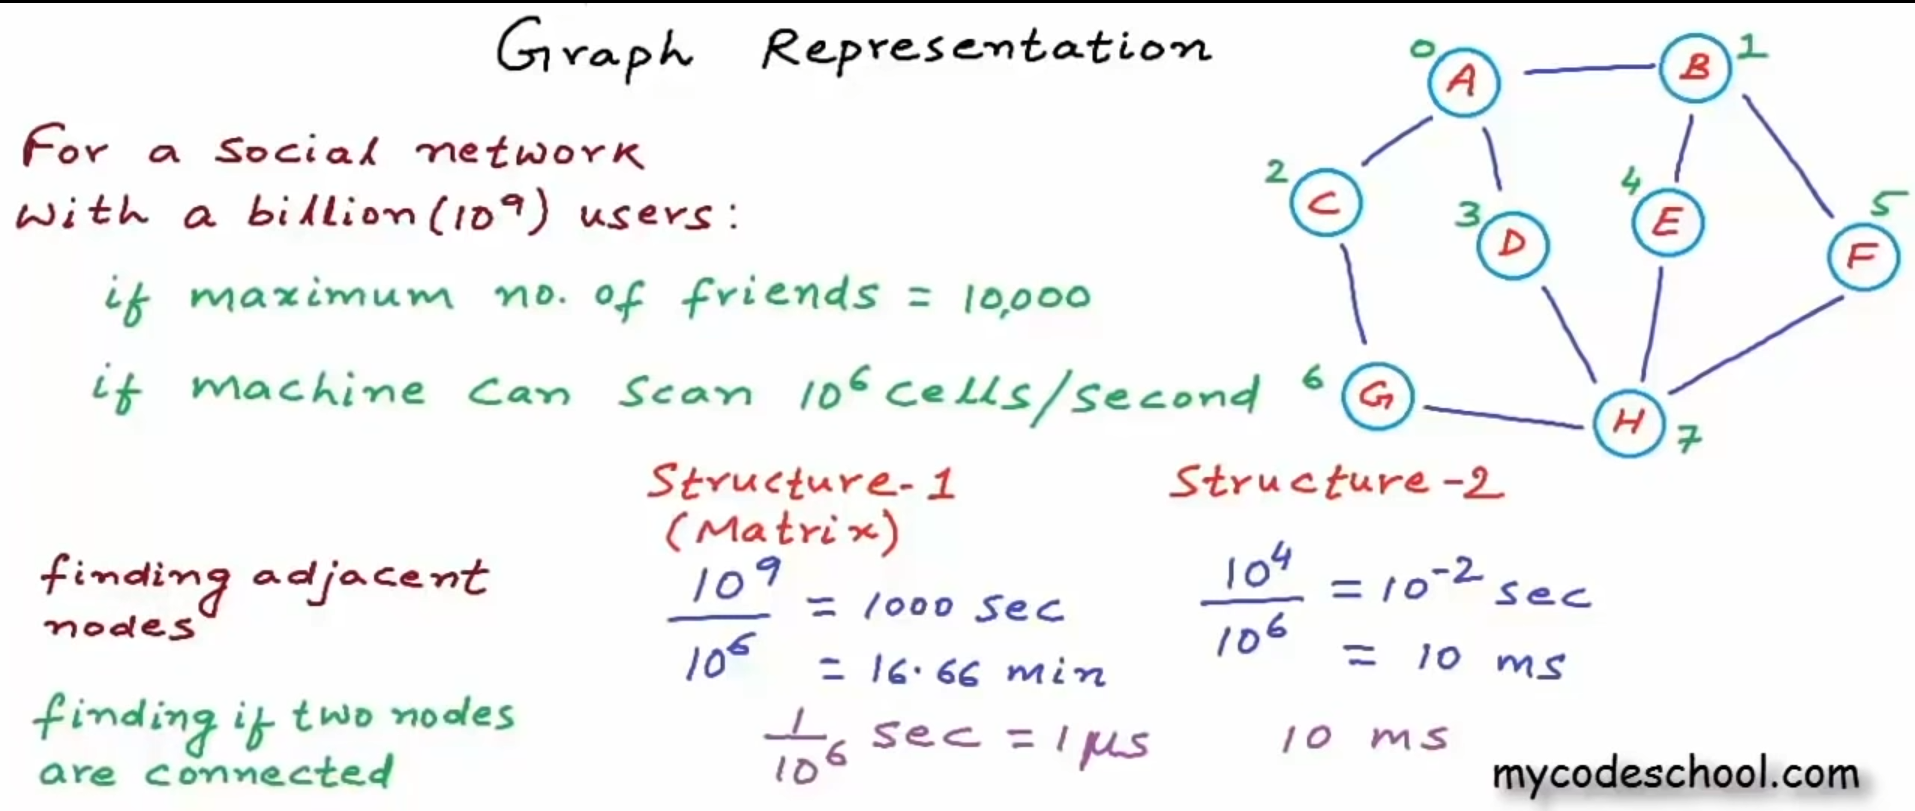 Graph Representation
For a social network
with a billion (10^9) users:
if maximum no. of friends = 10,000
if machine can scan 10^6 cells/second
0 A
B 1
2 C
3 D
4 E
5 F
6 G
H 7
Structure-1
(Matrix)
Structure-2
finding adjacent
nodes
10^9/10^6 = 1000 sec
= 16.66 min
10^4/10^6 = 10^-2 sec
= 10 ms
finding if two nodes
are connected
1/10^6 sec = 1 μs
10 ms
mycodeschool.com